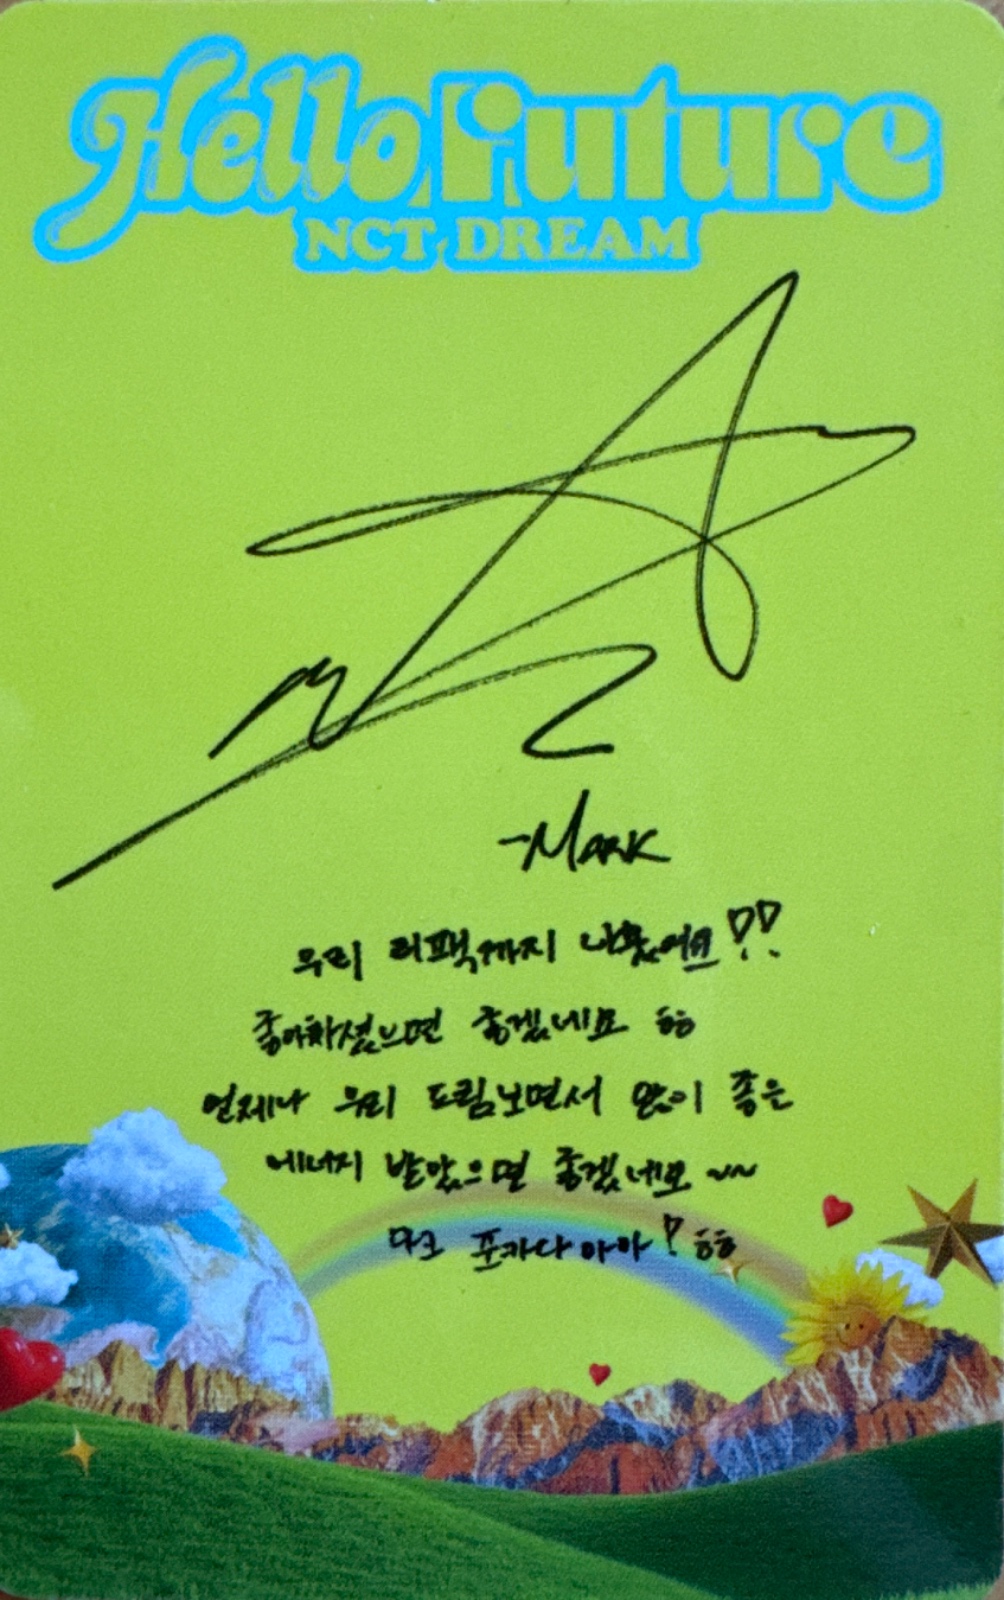 Hello Future
NCT DREAM
-MARK
우리 리팩까지 나왔어요!!
좋아하셨으면 좋겠네요 ㅎㅎ
언제나 우리 드림보면서 많이 좋은
에너지 받았으면 좋겠네요 ~~
마크 포카다아아! ㅎㅎ